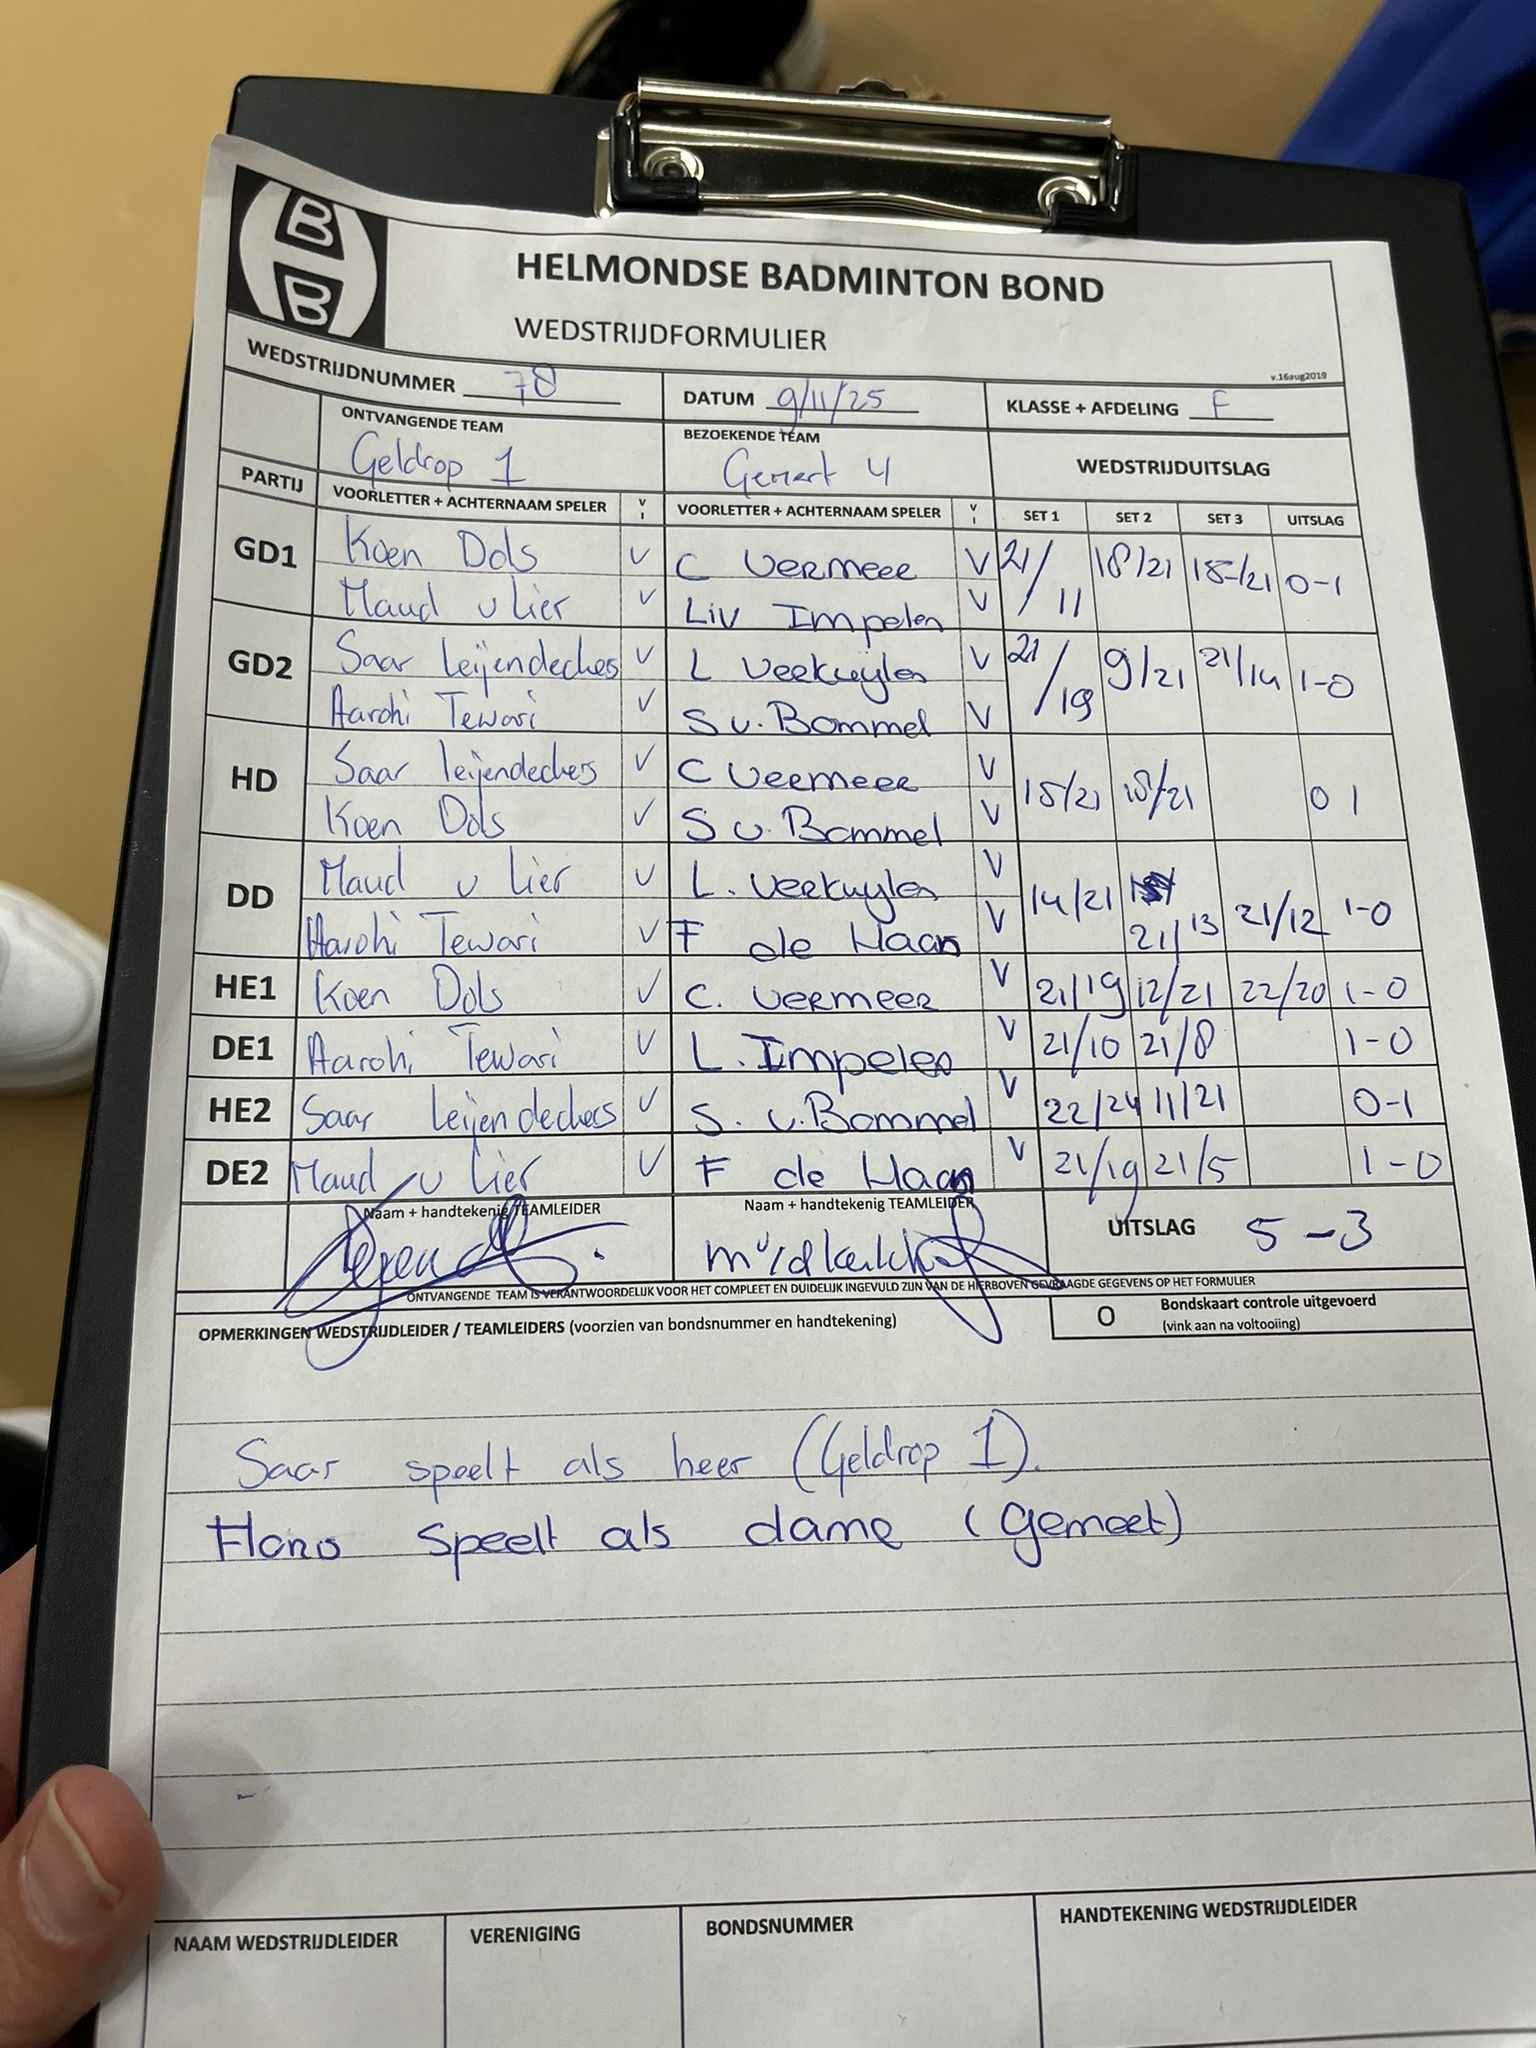 HBB
HELMONDSE BADMINTON BOND
WEDSTRIJDFORMULIER
v.16aug2019
WEDSTRIJDNUMMER 78 DATUM 9/11/25 KLASSE + AFDELING F
ONTVANGENDE TEAM BEZOEKENDE TEAM WEDSTRIJDUITSLAG
Geldrop 1 Gemert 4
PARTIJ VOORLETTER + ACHTERNAAM SPELER V I VOORLETTER + ACHTERNAAM SPELER V I SET 1 SET 2 SET 3 UITSLAG
GD1 Koen Dols V C Vermeer V 21/11 18/21 18/21 0-1
Maud v Lier V Liv Impelen V
GD2 Saar Leijendeckers V L Verkuylen V 21/19 9/21 21/14 1-0
Aarohi Tewari V S v. Bommel V
HD Saar Leijendeckers V C Vermeer V 15/21 18/21 0 1
Koen Dols V S v. Bommel V
DD Maud v Lier V L. Verkuylen V 14/21 21/13 21/12 1-0
Aarohi Tewari V F de Haas V
HE1 Koen Dols V C. Vermeer V 21/19 12/21 22/20 1-0
DE1 Aarohi Tewari V L. Impelen V 21/10 21/8 1-0
HE2 Saar Leijendeckers V S. v. Bommel V 22/24 11/21 0-1
DE2 Maud v Lier V F de Haas V 21/19 21/5 1-0
Naam + handtekenig TEAMLEIDER Naam + handtekenig TEAMLEIDER UITSLAG 5-3
ONTVANGENDE TEAM IS VERANTWOORDELIJK VOOR HET COMPLEET EN DUIDELIJK INGEVULD ZIJN VAN DE HIERBOVEN GEVRAAGDE GEGEVENS OP HET FORMULIER
OPMERKINGEN WEDSTRIJDLEIDER / TEAMLEIDERS (voorzien van bondsnummer en handtekening) O Bondskaart controle uitgevoerd
(vink aan na voltooiing)
Saar speelt als heer (Geldrop 1).
speelt als dame (gemert)
NAAM WEDSTRIJDLEIDER VERENIGING BONDSNUMMER HANDTEKENING WEDSTRIJDLEIDER